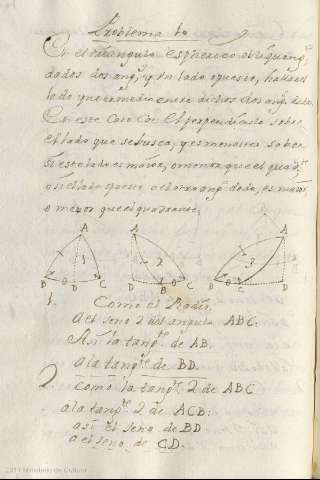 Problema 10
En el triangulo espherico obliquang.º
dados dos ang.s y un lado opuesto, hallar el
lado que media entre dichos dos ang.s dados.
En este Caso Cae el perpendiculo sobre
el lado que se busca, y es menester saber
si este lado es mayor, o menor que el quad.te
o si el lado opuesto a el otro ang.º dado, es maior,
o menor que el quadrante.
A A A
1 2 3
B D C B D C B C D
1.
Como el Radio,
Al seno 2 del angulo ABC:
Asi la tang.te de AB.
A la tang.te de BD.
2 Como la tang.te 2 de ABC
a la tang.te 2 de ACB:
asi el seno de BD
a el seno de CD.
2011 Ministerio de Cultura